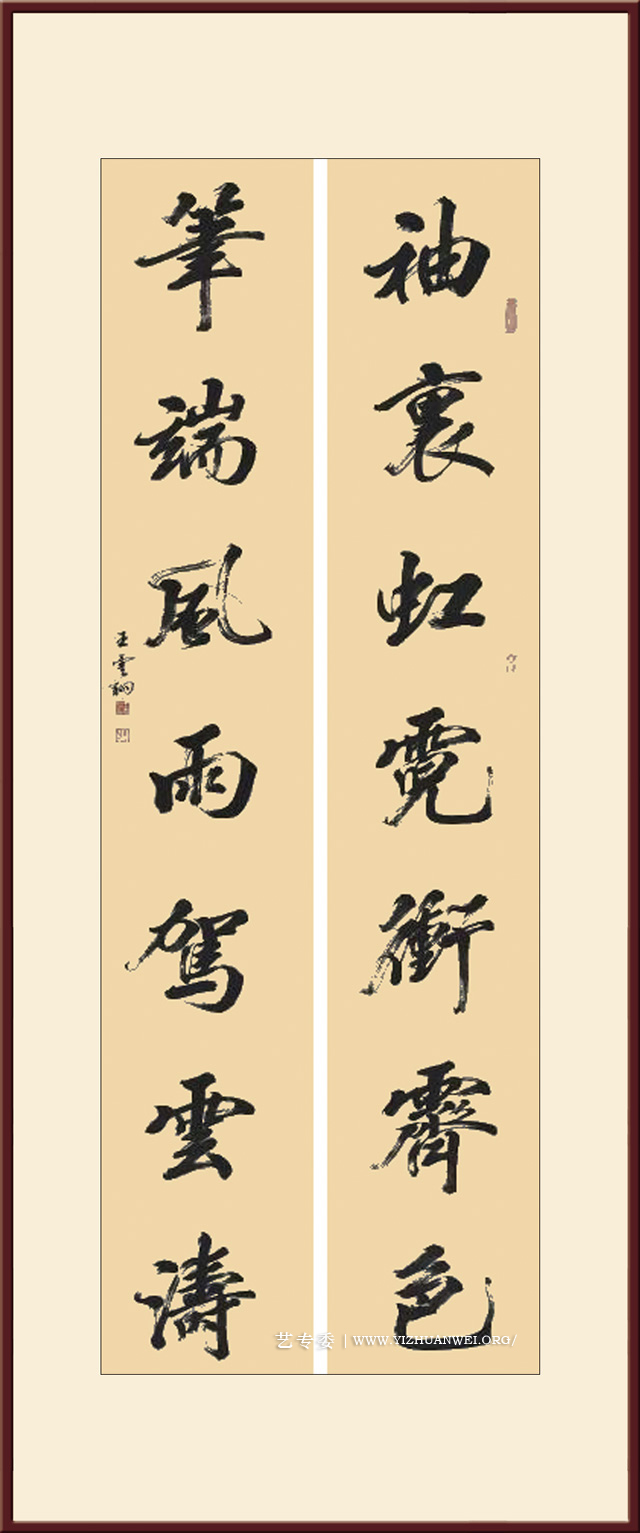 袖裏虹霓衝霽色
筆端風雨駕雲濤
艺专委 | WWW.YIZHUANWEI.ORG/